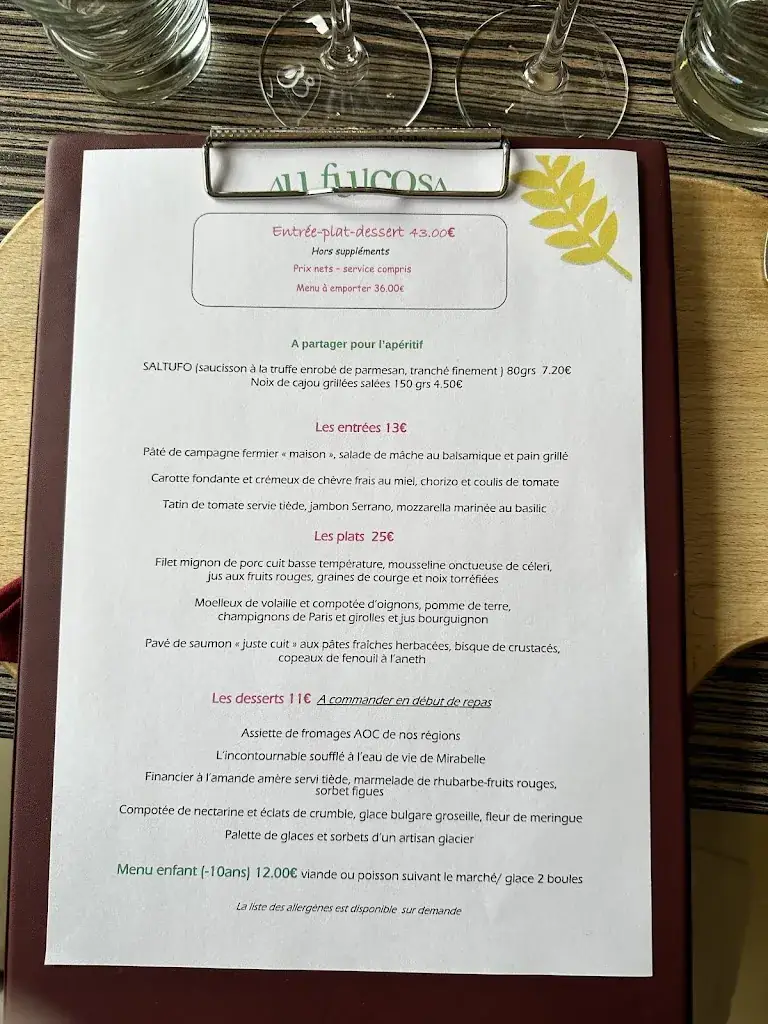 AU fulcosa
Entrée-plat-dessert 43.00€
Hors suppléments
Prix nets - service compris
Menu à emporter 36.00€
A partager pour l'apéritif
SALTUFO (saucisson à la truffe enrobé de parmesan, tranché finement ) 80grs 7.20€
Noix de cajou grillées salées 150 grs 4.50€
Les entrées 13€
Pâté de campagne fermier « maison », salade de mâche au balsamique et pain grillé
Carotte fondante et crémeux de chèvre frais au miel, chorizo et coulis de tomate
Tatin de tomate servie tiède, jambon Serrano, mozzarella marinée au basilic
Les plats 25€
Filet mignon de porc cuit basse température, mousseline onctueuse de céleri,
jus aux fruits rouges, graines de courge et noix torréfiées
Moelleux de volaille et compotée d'oignons, pomme de terre,
champignons de Paris et girolles et jus bourguignon
Pavé de saumon « juste cuit » aux pâtes fraîches herbacées, bisque de crustacés,
copeaux de fenouil à l'aneth
Les desserts 11€ A commander en début de repas
Assiette de fromages AOC de nos régions
L'incontournable soufflé à l'eau de vie de Mirabelle
Financier à l'amande amère servi tiède, marmelade de rhubarbe-fruits rouges,
sorbet figues
Compotée de nectarine et éclats de crumble, glace bulgare groseille, fleur de meringue
Palette de glaces et sorbets d'un artisan glacier
Menu enfant (-10ans) 12.00€ viande ou poisson suivant le marché/ glace 2 boules
La liste des allergènes est disponible sur demande